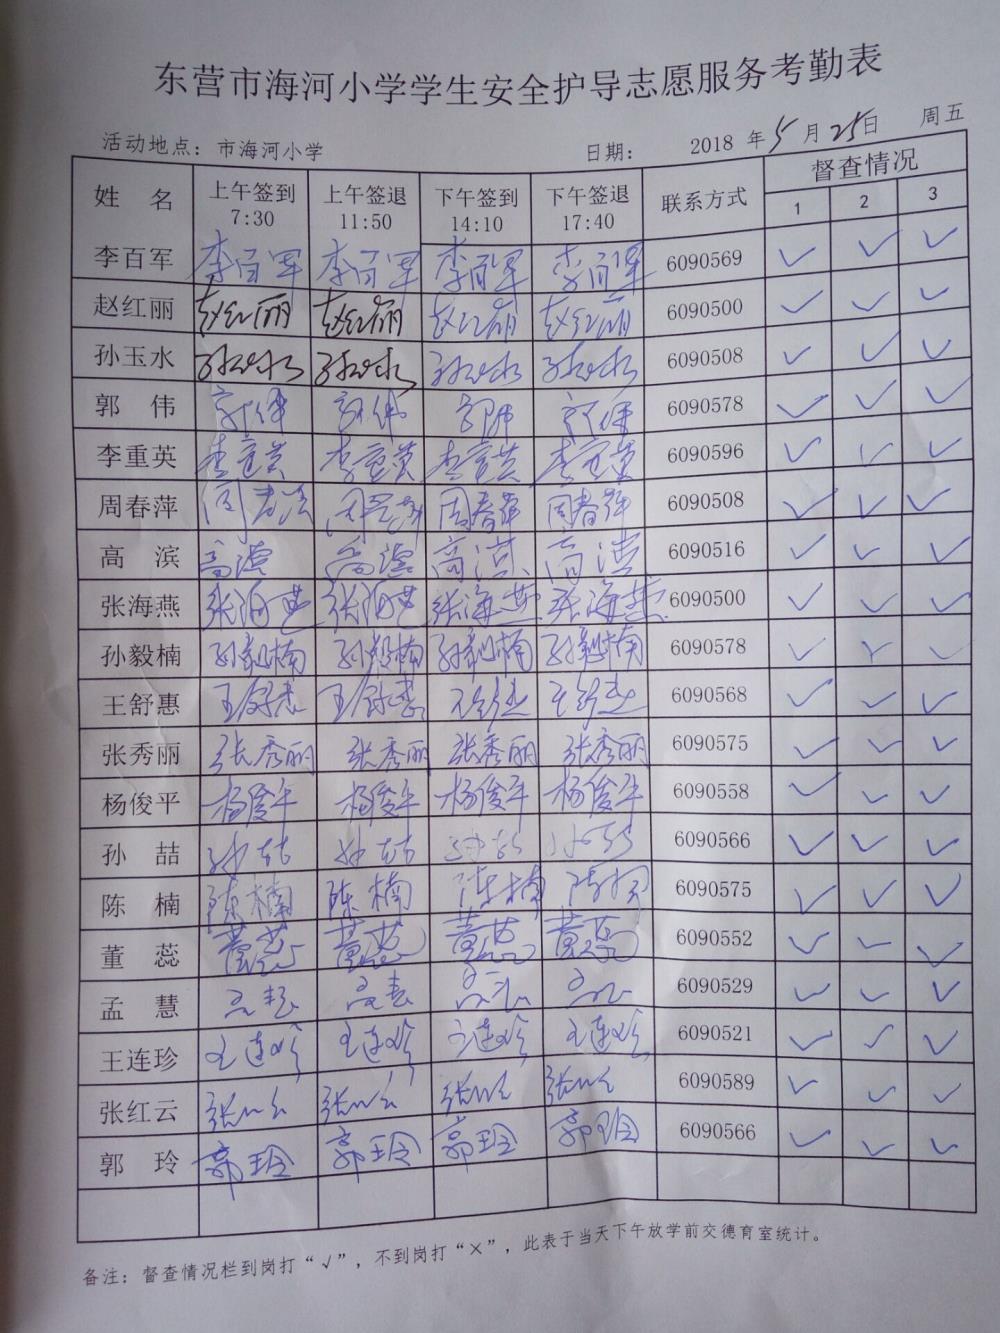 东营市海河小学学生安全护导志愿服务考勤表
活动地点：市海河小学 日期： 2018 年 5 月 25 日 周五
姓 名 上午签到 7:30 上午签退 11:50 下午签到 14:10 下午签退 17:40 联系方式 督查情况
1 2 3
李百军 李百军 李百军 李百军 李百军 6090569 ✓ ✓ ✓
赵红丽 赵红丽 赵红丽 赵红丽 赵红丽 6090500 ✓ ✓ ✓
孙玉水 孙玉水 孙玉水 孙玉水 孙玉水 6090508 ✓ ✓ ✓
郭 伟 郭伟 郭伟 郭伟 郭伟 6090578 ✓ ✓ ✓
李重英 李重英 李重英 李重英 李重英 6090596 ✓ ✓ ✓
周春萍 周春萍 周春萍 周春萍 周春萍 6090508 ✓ ✓ ✓
高 滨 高滨 高滨 高滨 高滨 6090516 ✓ ✓ ✓
张海燕 张海燕 张海燕 张海燕 张海燕 6090500 ✓ ✓ ✓
孙毅楠 孙毅楠 孙毅楠 孙毅楠 孙毅楠 6090578 ✓ ✓ ✓
王舒惠 王舒惠 王舒惠 王舒惠 王舒惠 6090568 ✓ ✓ ✓
张秀丽 张秀丽 张秀丽 张秀丽 张秀丽 6090575 ✓ ✓ ✓
杨俊平 杨俊平 杨俊平 杨俊平 杨俊平 6090558 ✓ ✓ ✓
孙 喆 孙喆 孙喆 孙喆 孙喆 6090566 ✓ ✓ ✓
陈 楠 陈楠 陈楠 陈楠 陈楠 6090575 ✓ ✓ ✓
董 蕊 董蕊 董蕊 董蕊 董蕊 6090552 ✓ ✓ ✓
孟 慧 孟慧 孟慧 孟慧 孟慧 6090529 ✓ ✓ ✓
王连珍 王连珍 王连珍 王连珍 王连珍 6090521 ✓ ✓ ✓
张红云 张红云 张红云 张红云 张红云 6090589 ✓ ✓ ✓
郭 玲 郭玲 郭玲 郭玲 郭玲 6090566 ✓ ✓ ✓
备注：督查情况栏到岗打“√”，不到岗打“×”，此表于当天下午放学前交德育室统计。